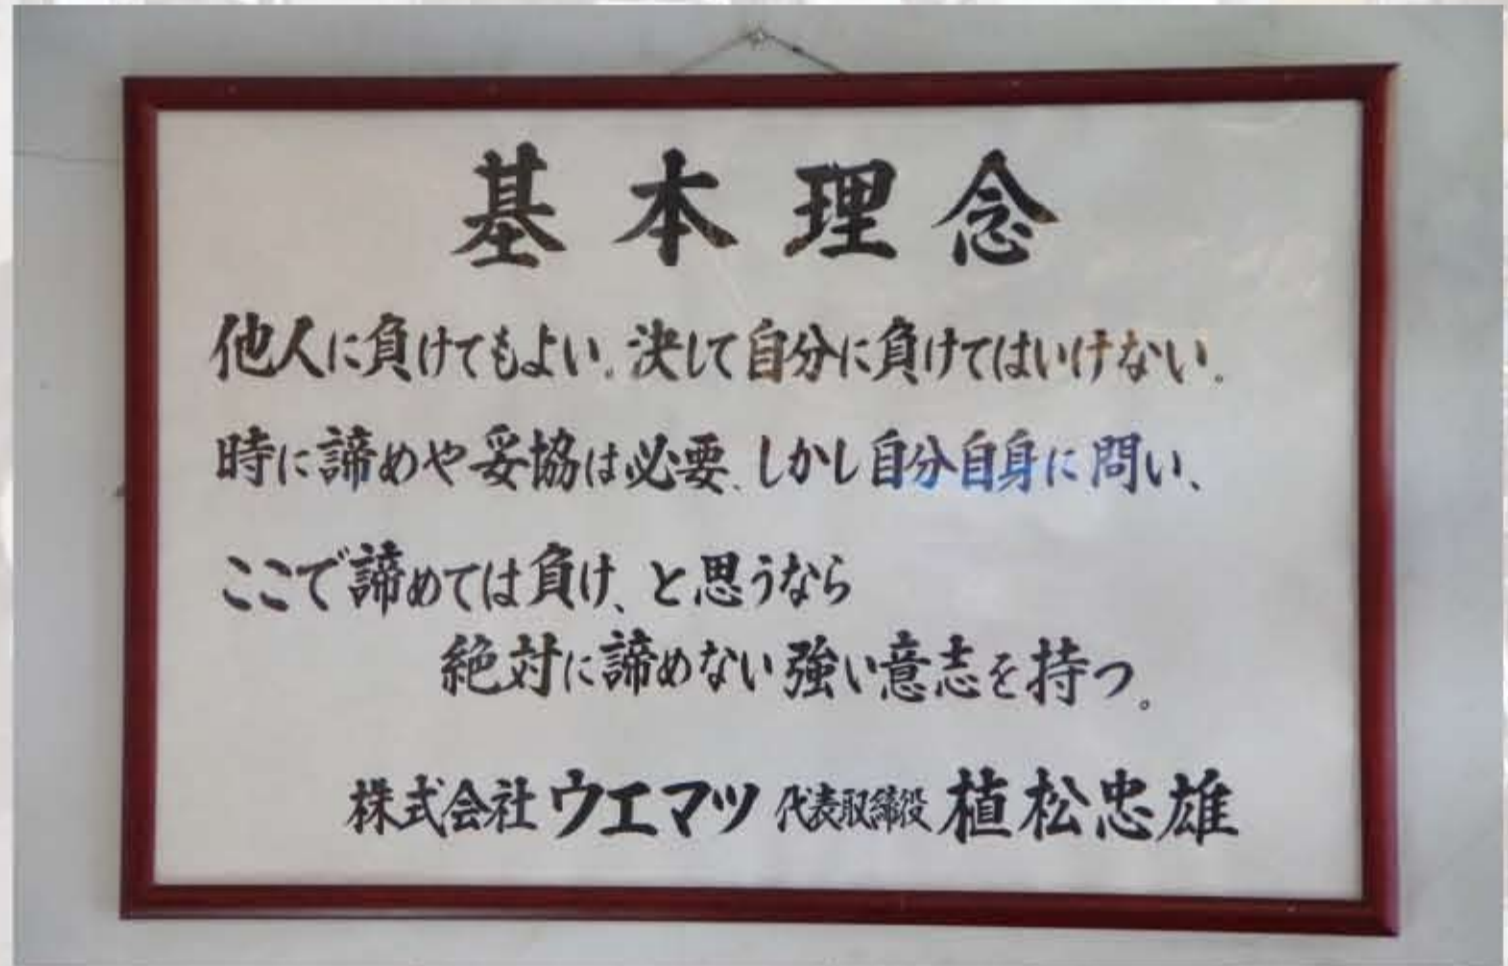 基本理念
他人に負けてもよい。決して自分に負けてはいけない。
時に諦めや妥協は必要、しかし自分自身に問い、
ここで諦めては負け、と思うなら
絶対に諦めない強い意志を持つ。
株式会社ウエマツ 代表取締役 植松忠雄